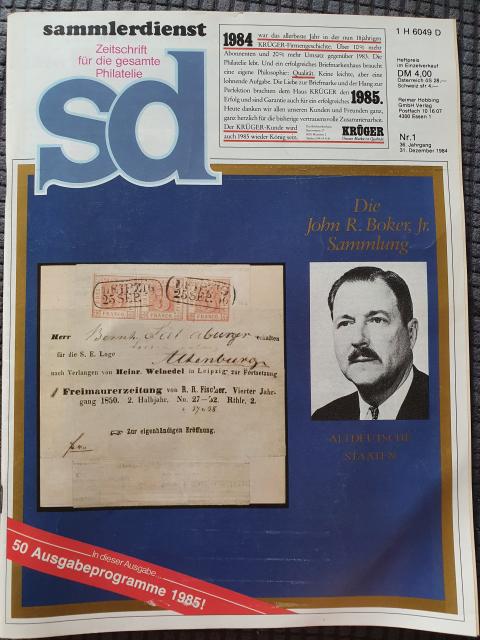 sammlerdienst
Zeitschrift
für die gesamte
Philatelie
sd
1984 war das allererste Jahr in der nun 18jährigen
KRÜGER-Firmengeschichte. Über 10% mehr
Abonnenten und 20% mehr Umsatz gegenüber 1983. Die
Philatelie lebt. Und ein erfolgreiches Briefmarkenhaus braucht
eine eigene Philosophie: Qualität. Keine leichte, aber eine
lohnende Aufgabe. Die Liebe zur Briefmarke und der Hang zur
Perfektion brachten dem Haus KRÜGER den
Erfolg und sind Garantie auch für ein erfolgreiches 1985.
Heute danken wir allen unseren Kunden und Freunden ganz,
ganz herzlich für die bisherige vertrauensvolle Zusammenarbeit.
Der KRÜGER-Kunde wird
auch 1985 wieder König sein.
KRÜGER
1 H 6049 D
Heftpreis
im Einzelverkauf
DM 4,00
Österreich öS 28,–
Schweiz str 4,–
Reimar Hobbing
GmbH Verlag
Postfach 10 16 07
4300 Essen 1
Nr. 1
36. Jahrgang
31. Dezember 1984
Die
John R. Boker, Jr.
Sammlung
LEIPZIG
25 SEP.
LEIPZIG
25 SEP.
FRANCO
FRANCO
FRANCO
Herr Bernh. erhalten
für die S. E. Loge Altenburg
nach Verlangen von Heinr. Weinedel in Leipzig zur Fortsetzung
1 Freimaurerzeitung von R. R. Fischer. Vierter Jahr-
gang 1850. 2. Halbjahr. No. 27–52. Rthlr. 2.
Zur eigenhändigen Eröffnung.
ALTDEUTSCHE
STAATEN
In dieser Ausgabe...
50 Ausgabeprogramme 1985!